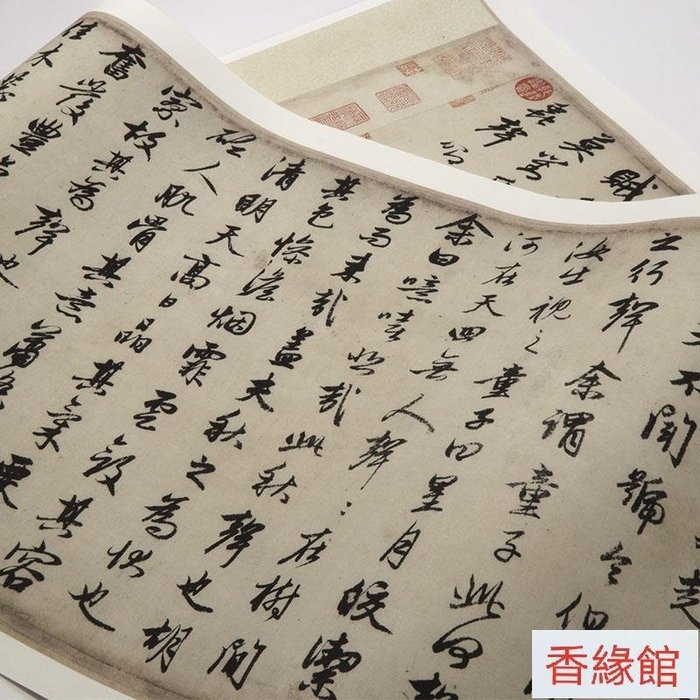 走
不聞號令但
之行聲余謂童子此何
汝出視之童子曰星月皎潔
河在天四無人聲々在樹間
余曰噫嘻悲哉此秋聲也胡
為而來哉蓋夫秋之為狀也
其色慘澹烟霏雲斂其容
清明天高日晶其氣栗
砭人肌骨其意蕭
寂故其為聲也
奮發豐
佳木
香緣館